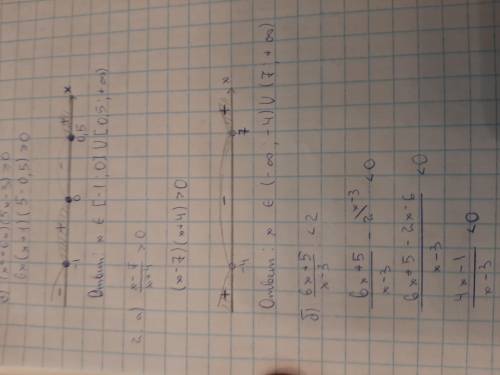 6x(x+1)(5-0,5)>0
- + - + x
-1 0 0,5
Ответ: x ∈ [-1; 0] U [0,5; +∞)
2. а) x-7/x+4 >0
(x-7)(x+4)>0
+ - + x
-4 7
Ответ: x ∈ (-∞; -4) U (7; +∞)
б) 6x+5/x-3 <2
6x+5/x-3 - 2\x-3 <0
6x+5-2x-6/x-3 <0
4x-1/x-3 <0